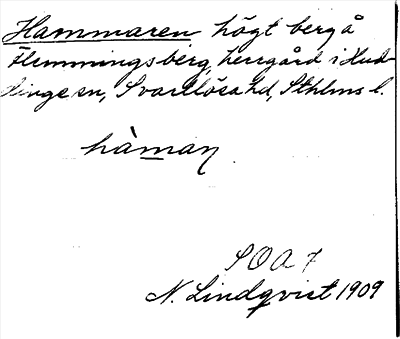 Hammaren högt berg å
Flemmingsberg, herrgård i Hud-
dinge sn, Svartlösa hd, Sthlms l.
hàman
SOA 7
N. Lindqvist 1909